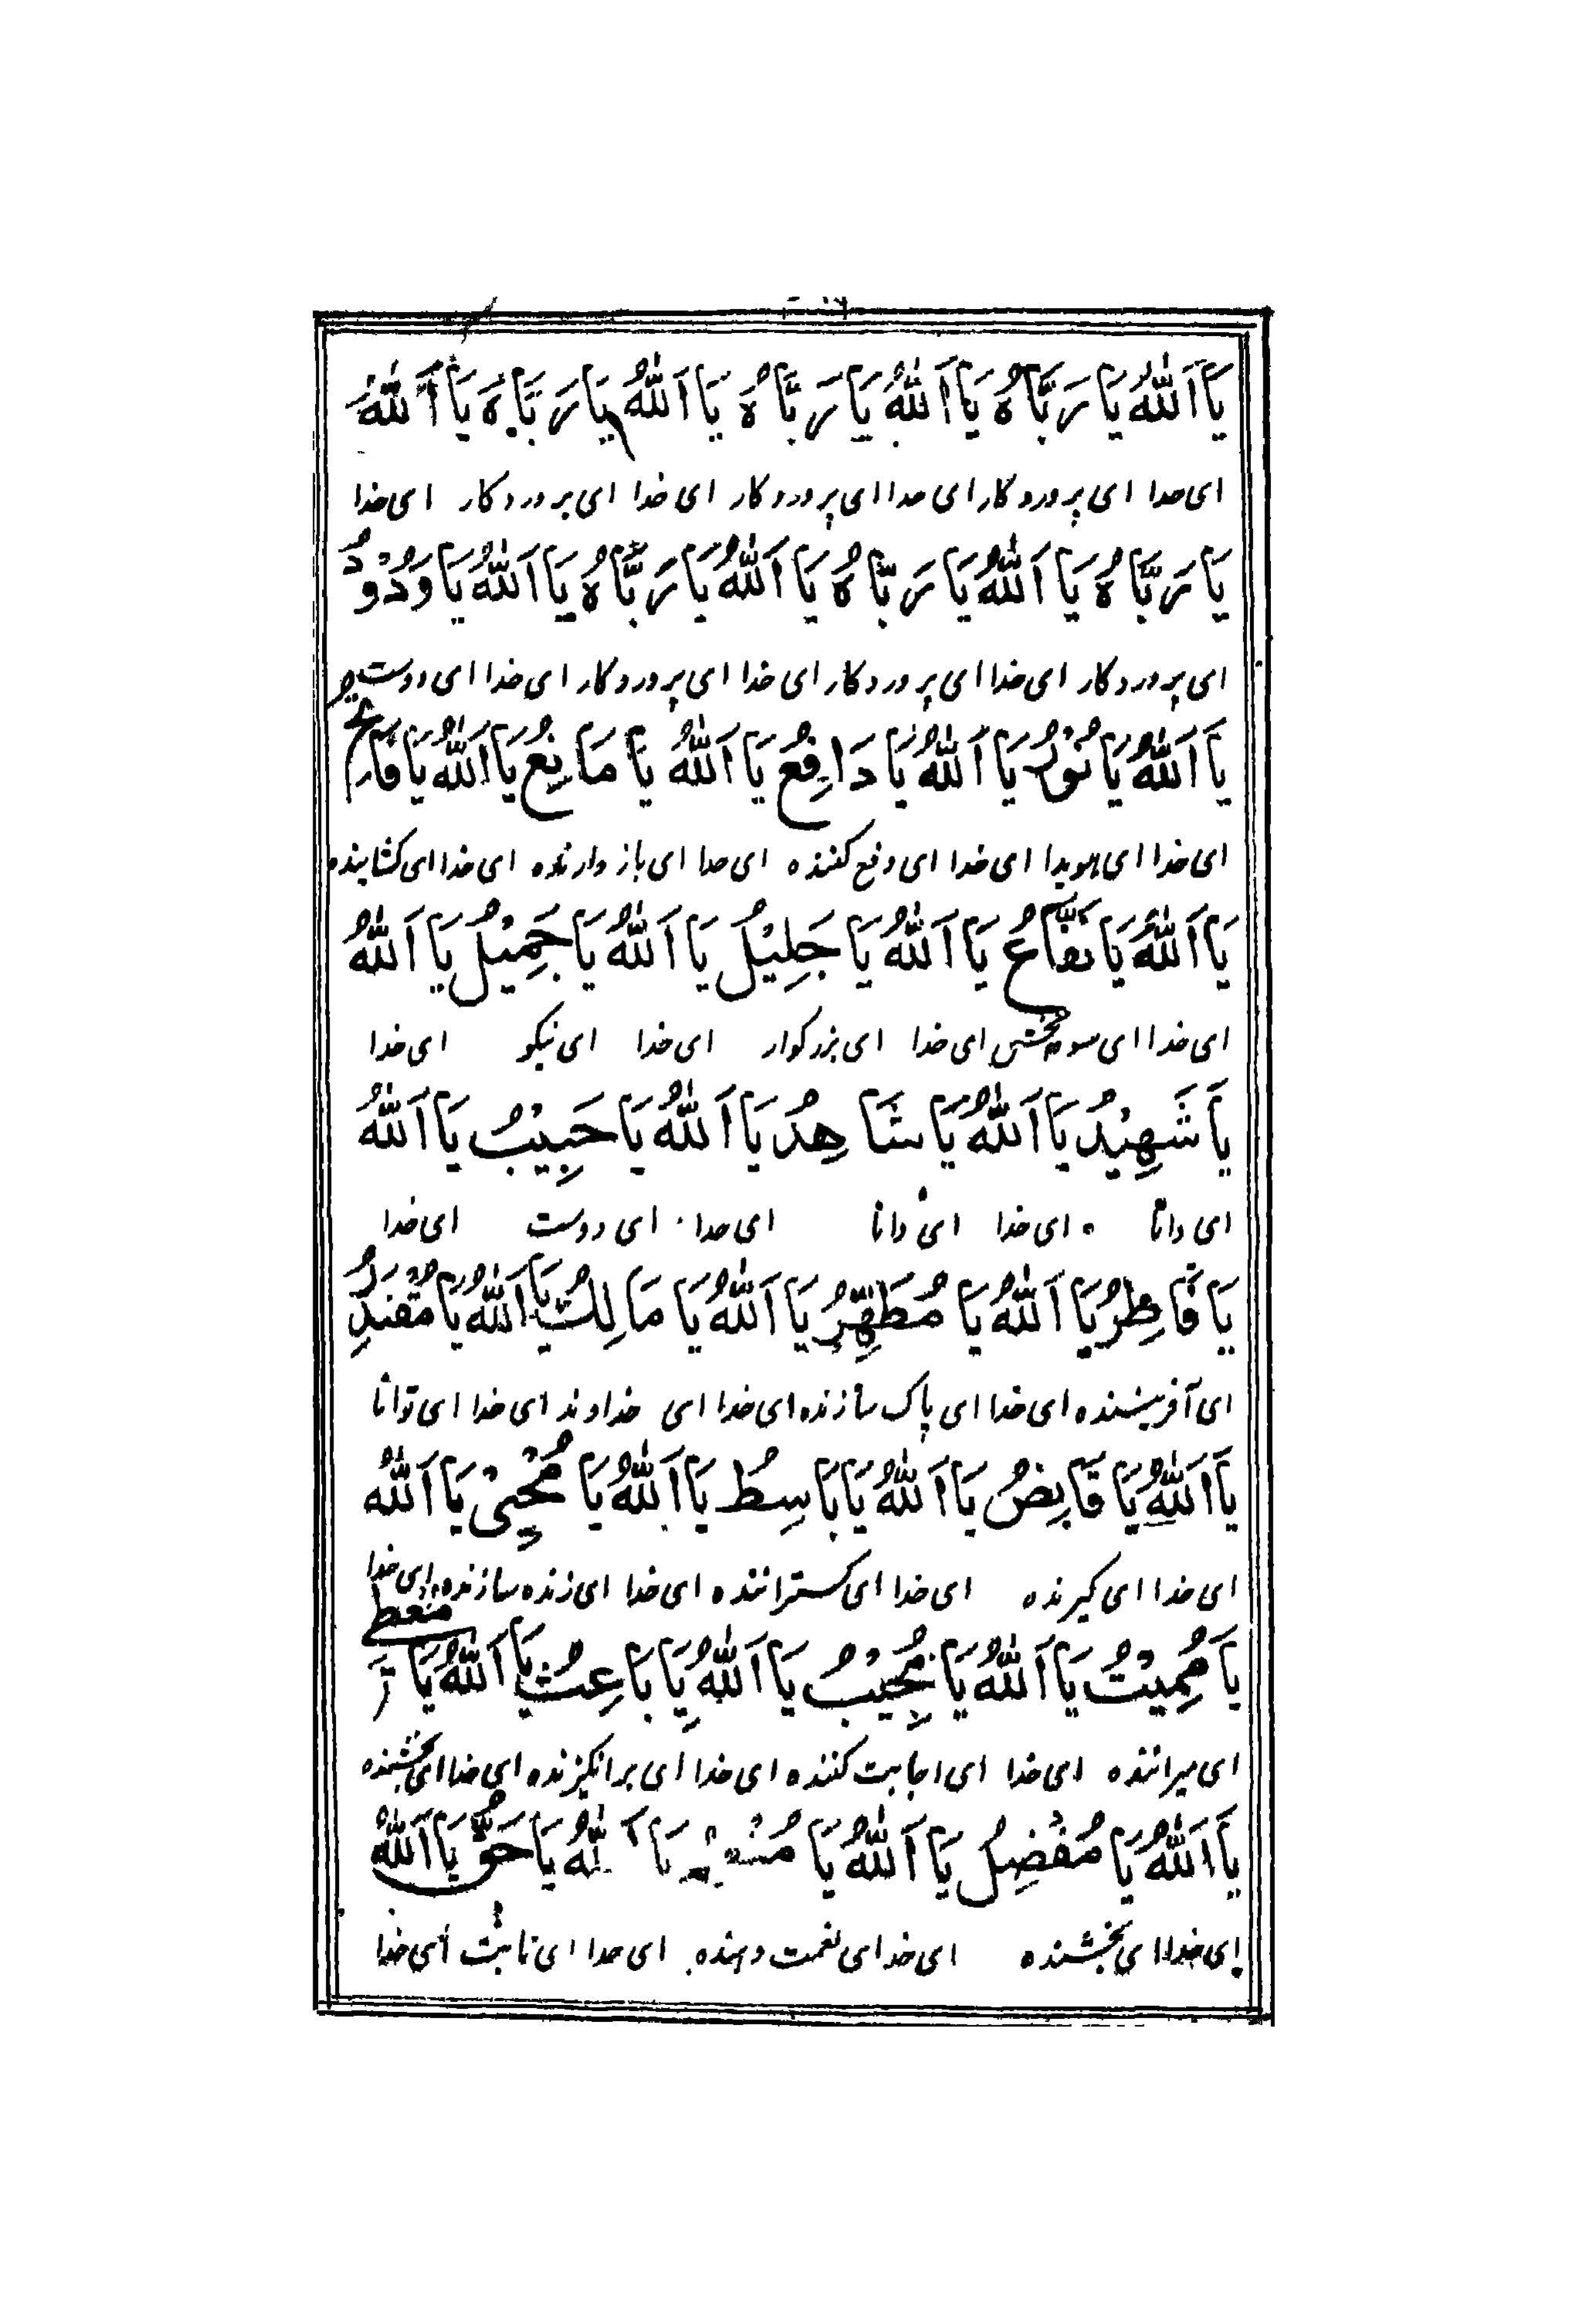 يَا اَللّٰهُ يَا رَبَّاهُ يَا اَللّٰهُ يَا رَبَّاهُ يَا اَللّٰهُ يَا رَبَّاهُ يَا اَللّٰهُ
ای خدا ای پروردکار ای خدا ای پروردکار ای خدا ای پروردکار ای خدا
يَا رَبَّاهُ يَا اَللّٰهُ يَا رَبَّاهُ يَا اَللّٰهُ يَا رَبَّاهُ يَا اَللّٰهُ يَا وَدُوْدُ
ای پروردکار ای خدا ای پروردکار ای خدا ای پروردکار ای خدا ای دوست
يَا اَللّٰهُ يَا نُوْرُ يَا اَللّٰهُ يَا دَافِعُ يَا اَللّٰهُ يَا مَانِعُ يَا اَللّٰهُ يَا
ای خدا ای هویدا ای خدا ای دفع کننده ای خدا ای باز دارنده ای خدا ای کشاینده
يَا اَللّٰهُ يَا نَفَّاعُ يَا اَللّٰهُ يَا جَلِيْلُ يَا اَللّٰهُ يَا جَمِيْلُ يَا اَللّٰهُ
ای خدا ای سود بخش ای خدا ای بزرکوار ای خدا ای نیکو ای خدا
يَا شَهِيْدُ يَا اَللّٰهُ يَا شَاهِدُ يَا اَللّٰهُ يَا حَبِيْبُ يَا اَللّٰهُ
ای دانا ای خدا ای دانا ای خدا ای دوست ای خدا
يَا فَاطِرُ يَا اَللّٰهُ يَا مُطَهِّرُ يَا اَللّٰهُ يَا مَالِكُ يَا اَللّٰهُ يَا مُقْتَدِرُ
ای آفریننده ای خدا ای پاک سازنده ای خدا ای خداوند ای خدا ای توانا
يَا اَللّٰهُ يَا قَابِضُ يَا اَللّٰهُ يَا بَاسِطُ يَا اَللّٰهُ يَا مُحْيِيْ يَا اَللّٰهُ
ای خدا ای کیرنده ای خدا ای کستراننده ای خدا ای زنده سازنده ای خدا
يَا مُمِيْتُ يَا اَللّٰهُ يَا مُجِيْبُ يَا اَللّٰهُ يَا بَاعِثُ يَا اَللّٰهُ يَا
ای میراننده ای خدا ای اجابت کننده ای خدا ای برانکیزنده ای خدا ای بخشنده
يَا اَللّٰهُ يَا مُفْضِلُ يَا اَللّٰهُ يَا يَا اَللّٰهُ يَا حَقُّ يَا اَللّٰهُ
ای خدا ای بخشنده ای خدا ای نعمت دهنده ای خدا ای ثابت ای خدا